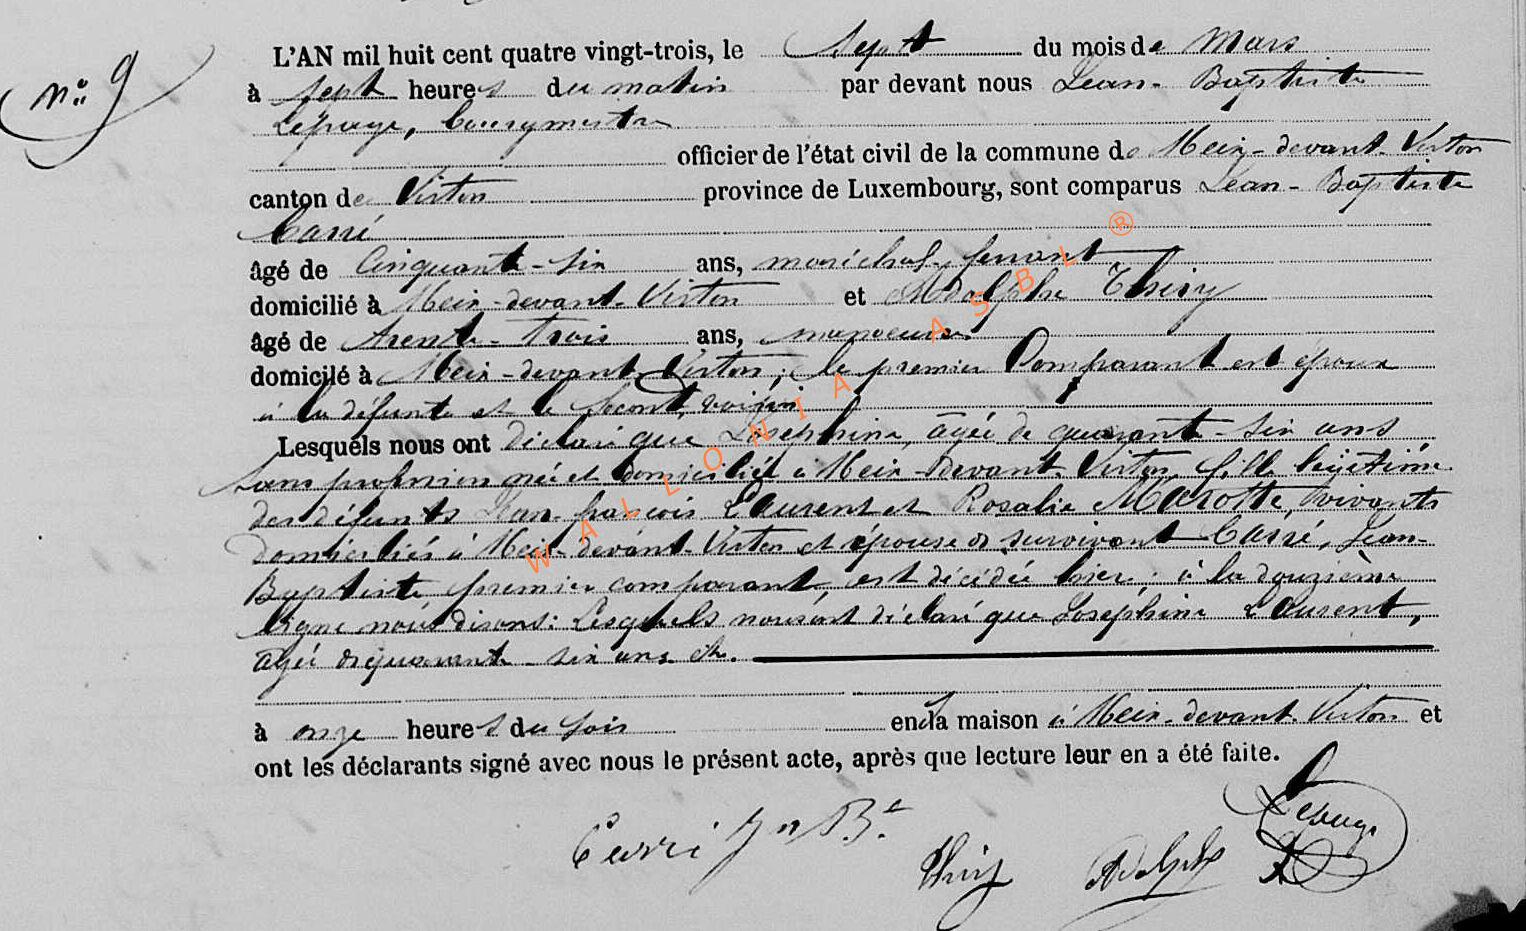 n° 9
L'AN mil huit cent quatre vingt-trois, le sept du mois de Mars
à sept heures du matin par devant nous Jean-Baptiste
Lepage, bourgmestre
officier de l'état civil de la commune de Meix-devant-Virton
canton de Virton province de Luxembourg, sont comparus Jean-Baptiste
Carré
âgé de Cinquante-six ans, maréchal ferrant
domicilié à Meix-devant-Virton et Adolphe Thiry
âgé de trente-trois ans, manoeuvre
domicilé à Meix-devant-Virton; le premier Comparant est époux
à la défunte et le second, voisin
Lesquels nous ont déclaré que Joséphine, âgée de quarante-six ans
sans profession née et domiciliée à Meix-devant-Virton, fille légitime
des défunts Jean-françois Laurent et Rosalie Marotte, vivants
domiciliés à Meix-devant-Virton et épouse de survivant Carré, Jean-
Baptiste premier comparant, est décédée hier; à la douzième
ligne nous disons: Lesquels nous ont déclaré que Joséphine Laurent,
âgée de quarante-six ans etc.
à onze heures du soir en la maison à Meix-devant-Virton et
ont les déclarants signé avec nous le présent acte, après que lecture leur en a été faite.
Carré Jn Bte
Thiry Adolphe
Lepage
WALLONIA ASBL ®